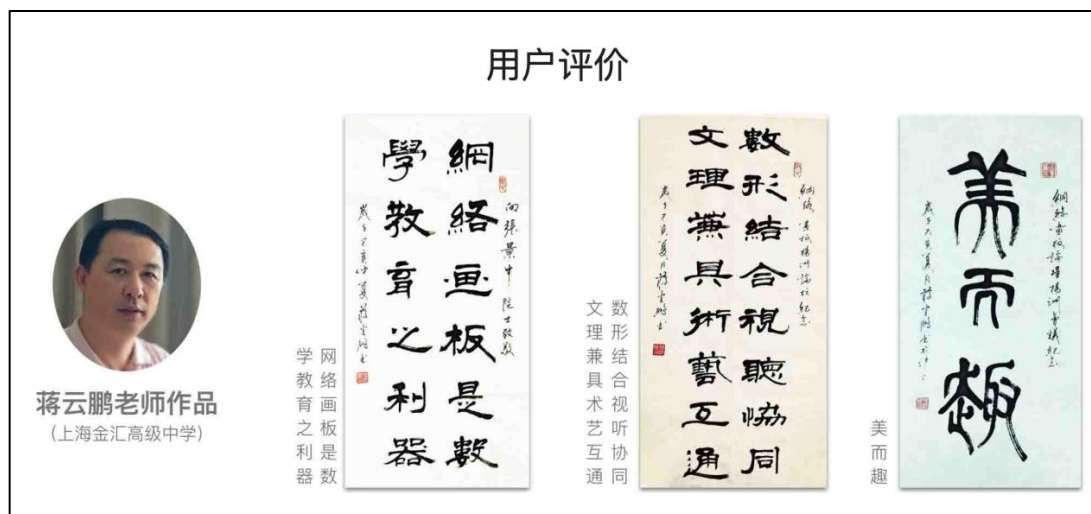 用户评价
蒋云鹏老师作品
(上海金汇高级中学)
网络画板是数
学教育之利器
網絡画板是數
學教育之利器
向張景中院士致敬
数形结合视听协同
文理兼具术艺互通
數形結合視聽協同
文理兼具術藝互通
美而趣
美而趣